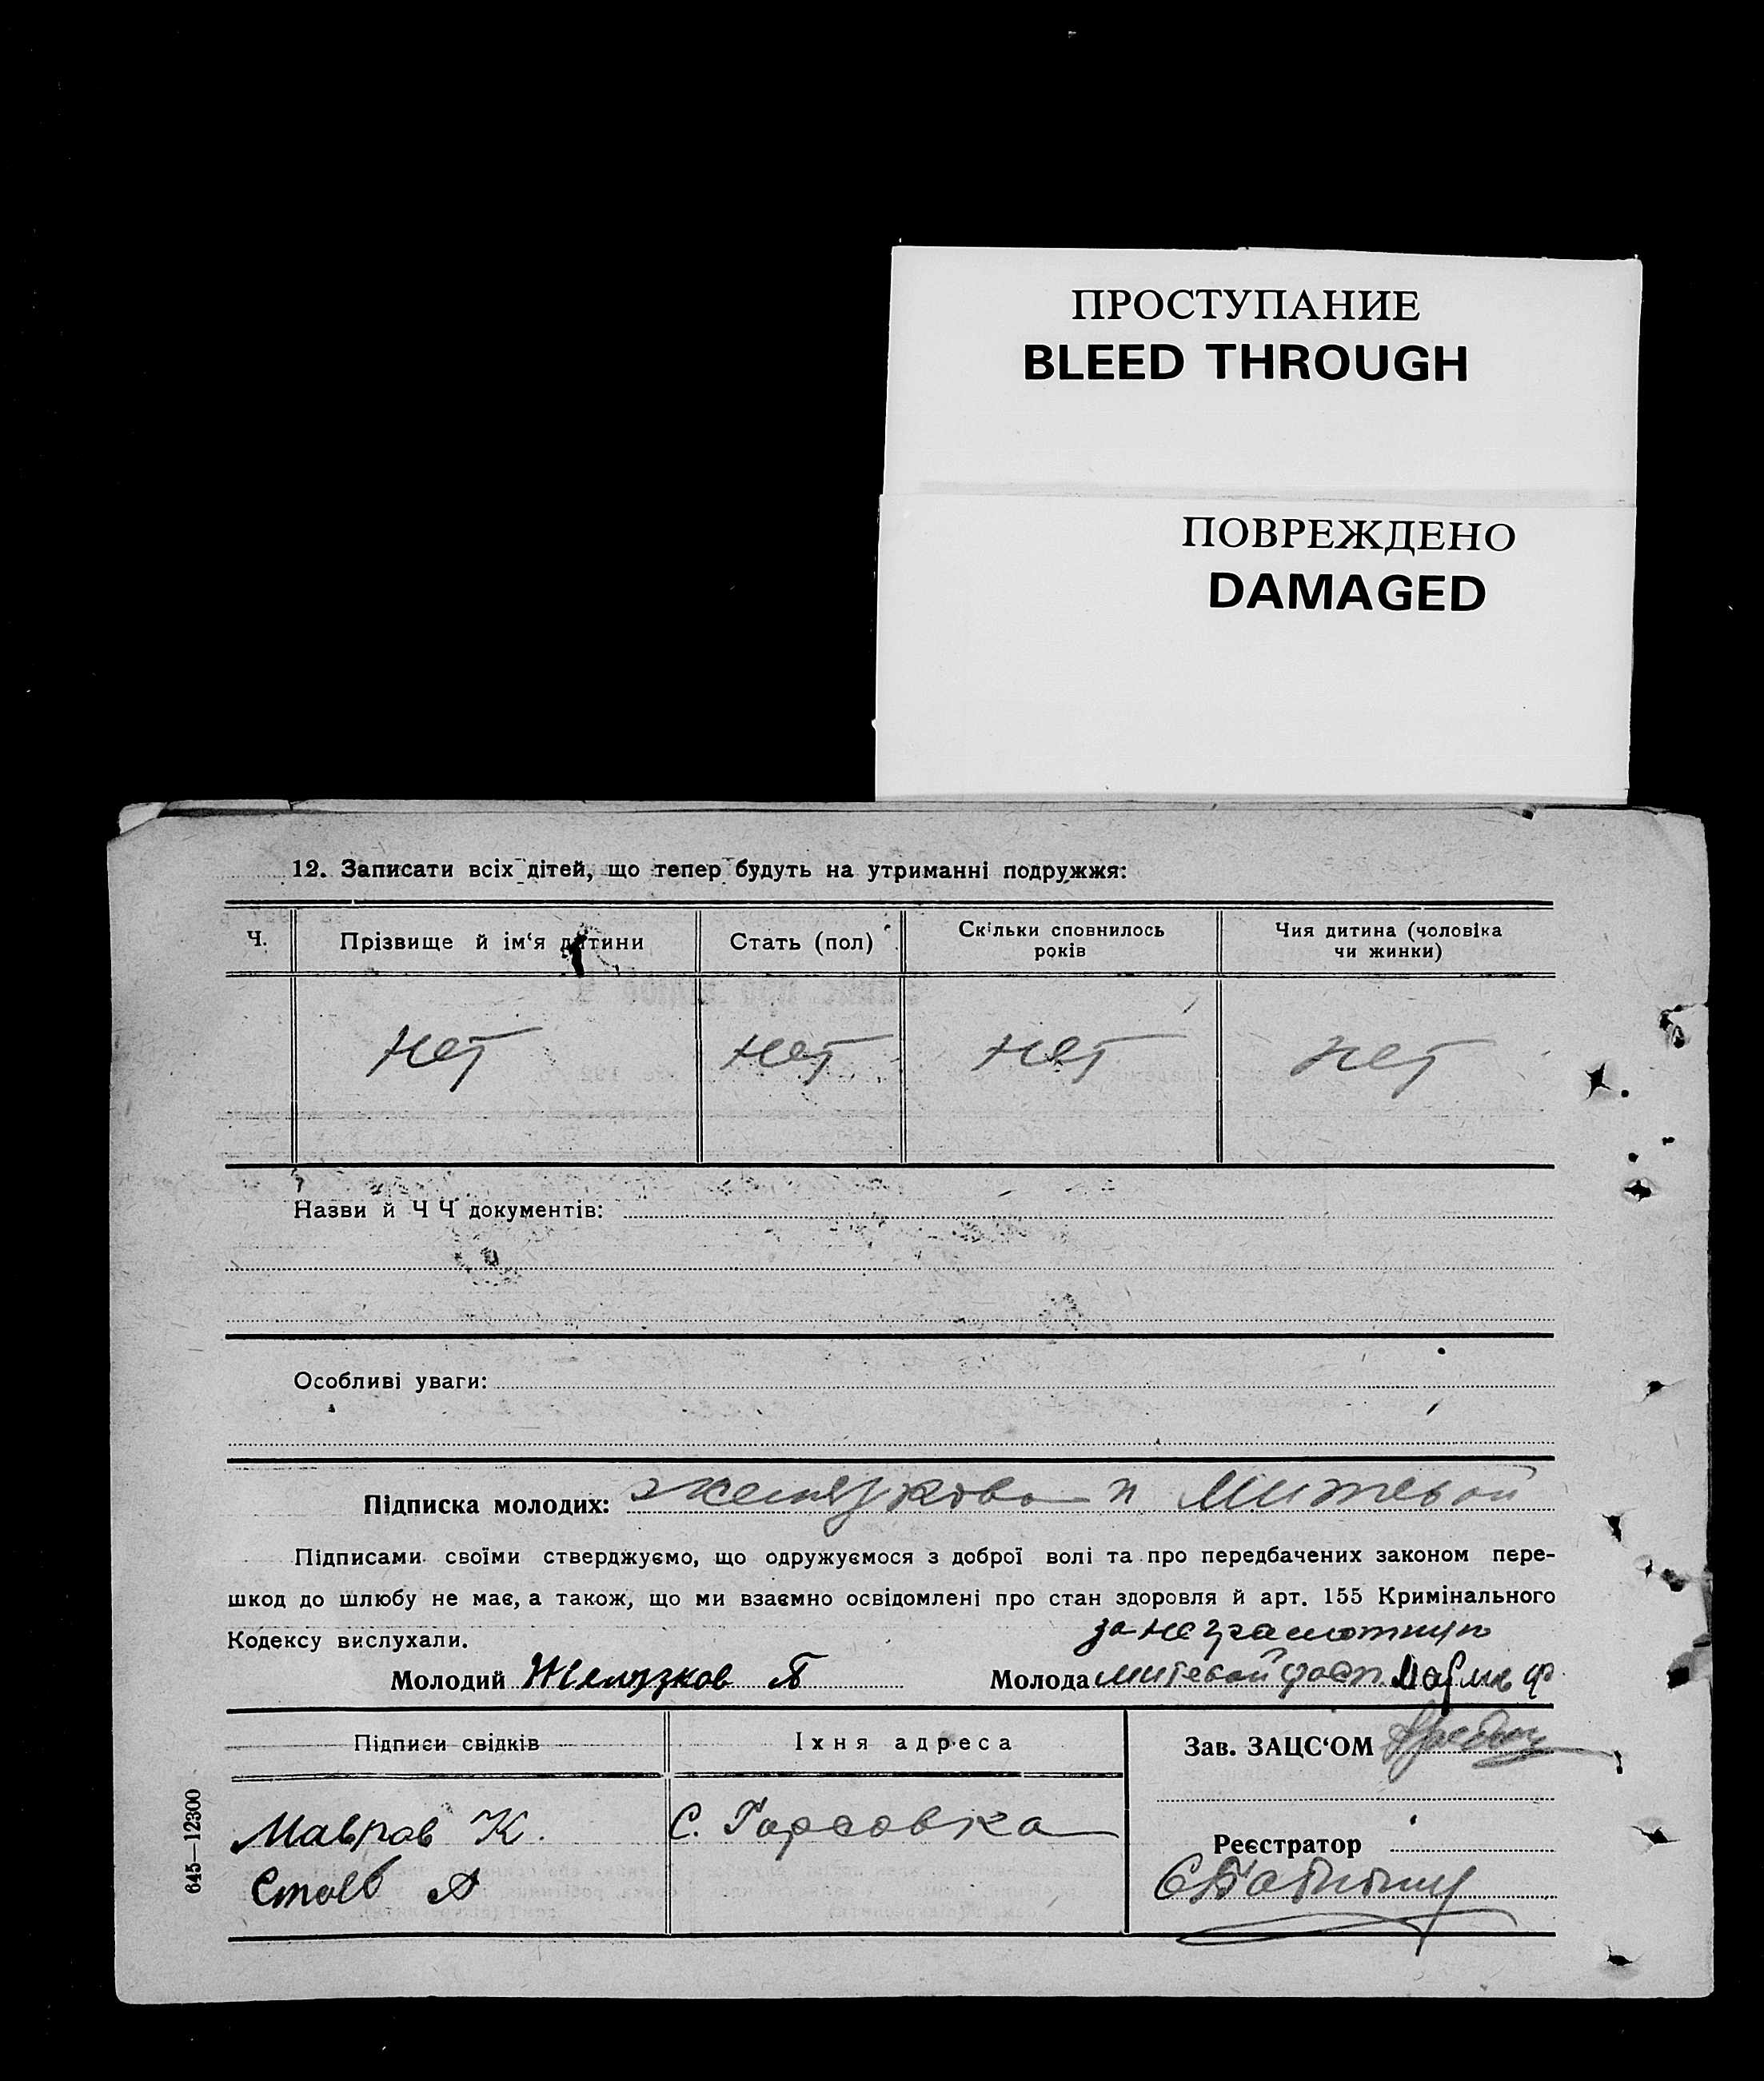 ПРОСТУПАНИЕ
BLEED THROUGH
ПОВРЕЖДЕНО
DAMAGED
12. Записати всіх дітей, що тепер будуть на утриманні подружжя:
Ч.
Прізвище й ім'я дитини
Стать (пол)
Скільки сповнилось
років
Чия дитина (чоловіка
чи жинки)
нет нет нет нет
Назви й Ч Ч документів:
Особливі уваги:
Підписка молодих: и Митевой
Підписами своїми стверджуємо, що одружуємося з доброї волі та про передбачених законом пере-
шкод до шлюбу не має, а також, що ми взаємно освідомлені про стан здоровля й арт. 155 Кримінального
Кодексу вислухали.
за неграмотную
Молодий Желязков П
Молода Митевой расп. Ф
Підписи свідків
Їхня адреса
Зав. ЗАЦС'ОМ
Мавров К.
С. Гарсовка
Реєстратор
645—12300